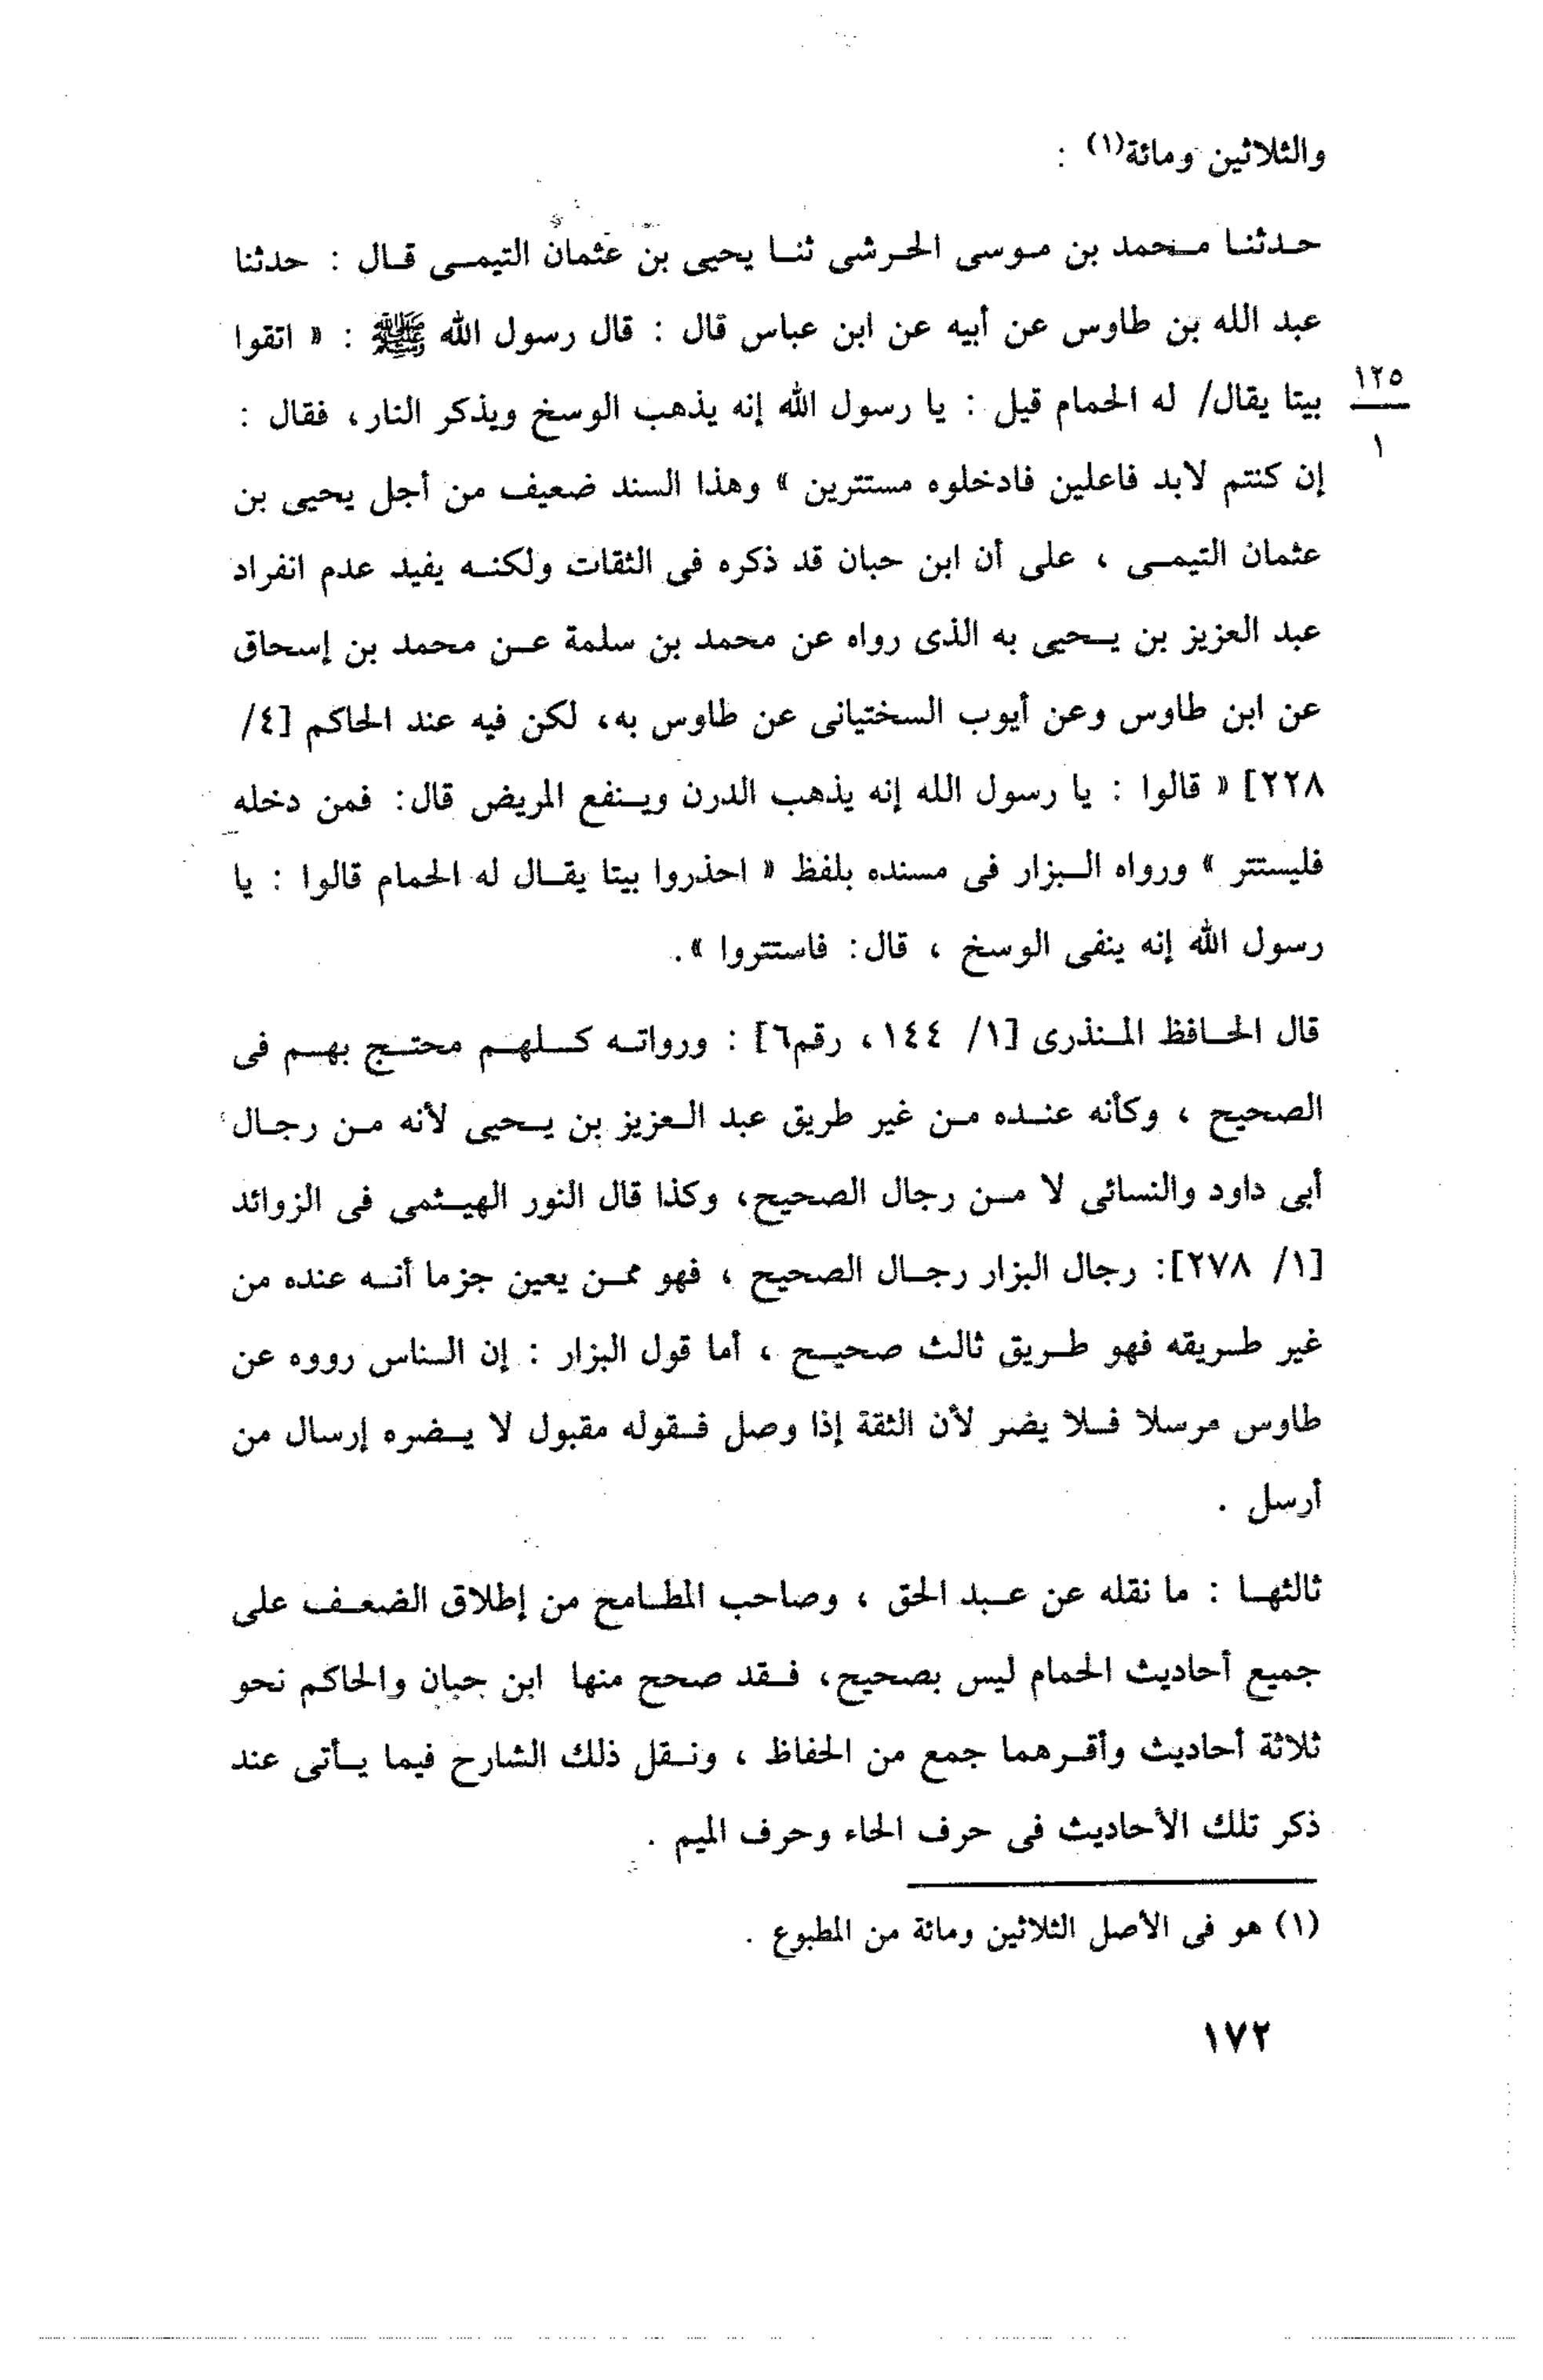 والثلاثين ومائة(١) :
حدثنا محمد بن موسى الحرشى ثنا يحيى بن عثمان التيمى قال : حدثنا
عبد الله بن طاوس عن أبيه عن ابن عباس قال : قال رسول الله ﷺ : « اتقوا
بيتا يقال/ له الحمام قيل : يا رسول الله إنه يذهب الوسخ ويذكر النار، فقال :
١٢٥
١
إن كنتم لابد فاعلين فادخلوه مستترين » وهذا السند ضعيف من أجل يحيى بن
عثمان التيمى ، على أن ابن حبان قد ذكره فى الثقات ولكنه يفيد عدم انفراد
عبد العزيز بن يحيى به الذى رواه عن محمد بن سلمة عن محمد بن إسحاق
عن ابن طاوس وعن أيوب السختيانى عن طاوس به، لكن فيه عند الحاكم [٤/
٢٢٨] « قالوا : يا رسول الله إنه يذهب الدرن وينفع المريض قال: فمن دخله
فليستتر » ورواه البزار فى مسنده بلفظ « احذروا بيتا يقال له الحمام قالوا : يا
رسول الله إنه ينفى الوسخ ، قال: فاستتروا ».
قال الحافظ المنذرى [١/ ١٤٤، رقم٦] : ورواته كلهم محتج بهم فى
الصحيح ، وكأنه عنده من غير طريق عبد العزيز بن يحيى لأنه من رجال
أبى داود والنسائى لا من رجال الصحيح، وكذا قال النور الهيثمى فى الزوائد
[١/ ٢٧٨]: رجال البزار رجال الصحيح ، فهو ممن يعين جزما أنه عنده من
غير طريقه فهو طريق ثالث صحيح ، أما قول البزار : إن الناس رووه عن
طاوس مرسلا فلا يضر لأن الثقة إذا وصل فقوله مقبول لا يضره إرسال من
أرسل .
ثالثها : ما نقله عن عبد الحق ، وصاحب المطامح من إطلاق الضعف على
جميع أحاديث الحمام ليس بصحيح، فقد صحح منها ابن حبان والحاكم نحو
ثلاثة أحاديث وأقرهما جمع من الحفاظ ، ونقل ذلك الشارح فيما يأتى عند
ذكر تلك الأحاديث فى حرف الحاء وحرف الميم .
(١) هو فى الأصل الثلاثين ومائة من المطبوع .
١٧٢